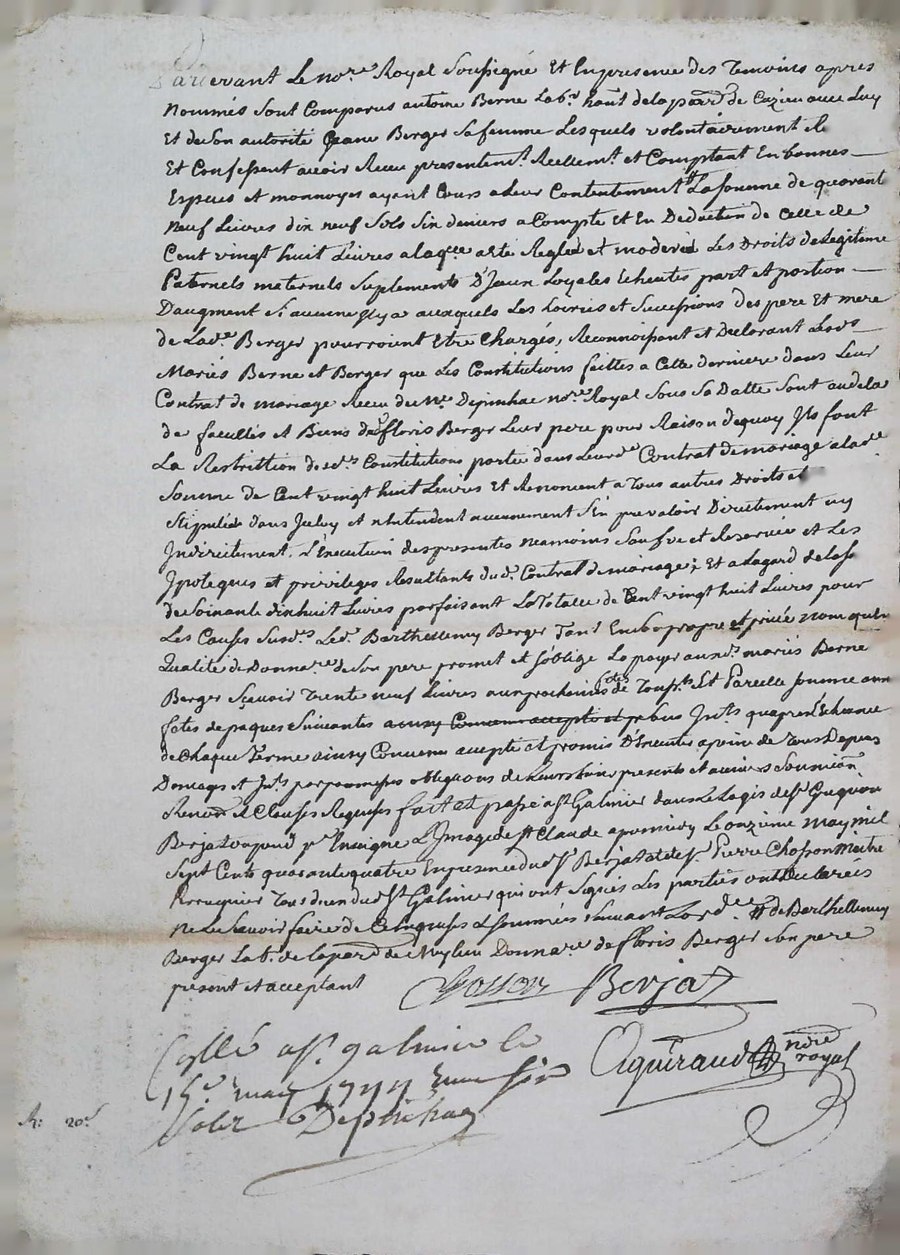 Pardevant Le no.re Royal Soussigné Et En presence des Temoins apres
Nommés Sont Comparus antoine Berne Lab.r hab.t de la par.sse de Cazieu avec Luy
Et de Son autorité Jeane Berger Sa femme Lesquels volontairement
Et Confessent avoir Receu presentem.t Reellem.t et Comptant En bonnes
Especes et monnoyes ayant Cours a Leur Contentement La Somme de quarant
Neuf Livres dix neuf Sols Six deniers a Compte et En Deduction de Celle de
Cent vingt huit Livres a laq.lle a eté Reglée et moderée Les Droits de Legitime
Paternels maternels Suplements D'Iceux Loyales Echeutes part et portion
Daugment Si aucune Il y a auxquels Les hoiries et Successions des pere Et mere
de Lad.e Berger pourroient Etre Chargés, Reconnoissant et Declarant Lesds
Mariés Berne et Berger que Les Constitutions faittes a Cette derniere dans Leur
Contrat de mariage Receu de M.e Depinhac no.re Royal Sous Sa Datte Sont audela
de facultés et Biens de floris Berger Leur pere pour Raison de quoy Ils font
La Restrittion des d.s Constitutions portée dans Leurd.e Contrat de mariage a lad.e
Somme de Cent vingt huit Livres Et Renoncent a Tous autres Droits et
Stipulés dans Iceluy et n'Entendent aucunement S'En prevaloir Directement ny
Indirectement. L'Execution des presentes neamoins Sauf et Reservée et Les
Ipoteques et privileges Resultants du d. Contrat de mariage; Et a Legard de la So
de Soixante dix huit Livres parfaisant La Totalle de Cent vingt huit Livres pour
Les Causes Sus d.s Led. Barthellemy Berger Tant En So propre et privée nom qu'En
Qualité de Donnat.re de Son pere promet et S'oblige La payer aux d.s mariés Berne
Berger Sçavoir Trente neuf Livres aux prochaines fetes de Tous.ts Et Pareille Somme aux
fetes de paques Suivantes ainsy Convenu accepté et Sans Int.ts qu'apres L'Echeance
de Chaque Terme ainsy Convenu accepté et promis D'Executer a peine de Tous Depens
Domages et Int.ts par promesses obligations de Leurs biens presents et avenirs Soumission
Renon.on et Clauses Requises fait et passé a S.t Galmier dans Le Logis de S.r Gregoire
Berjat ou pend p.r Enseigne L'Image de S.t Claude apres midy Le onzieme May mil
Sept Cents quarante quatre En presence dud. S.r Berjat et de S.r Pierre Chosson Maitre
Perruquier Tous deux dud. S.t Galmier qui ont Signés Les parties ont Declarées
Ne Le Scavoir faire de Ce Enquises et Sommées Suivant Lord.ce # de Barthellemy
Berger Lab.r de La par.sse de Donnat.re de floris Berger Son pere
present et acceptant
Chosson Berjat
Collé a S.t galmier le
15.e may 1744
Solz Depinhac
Aguiraud nore
royal
R: 20.s